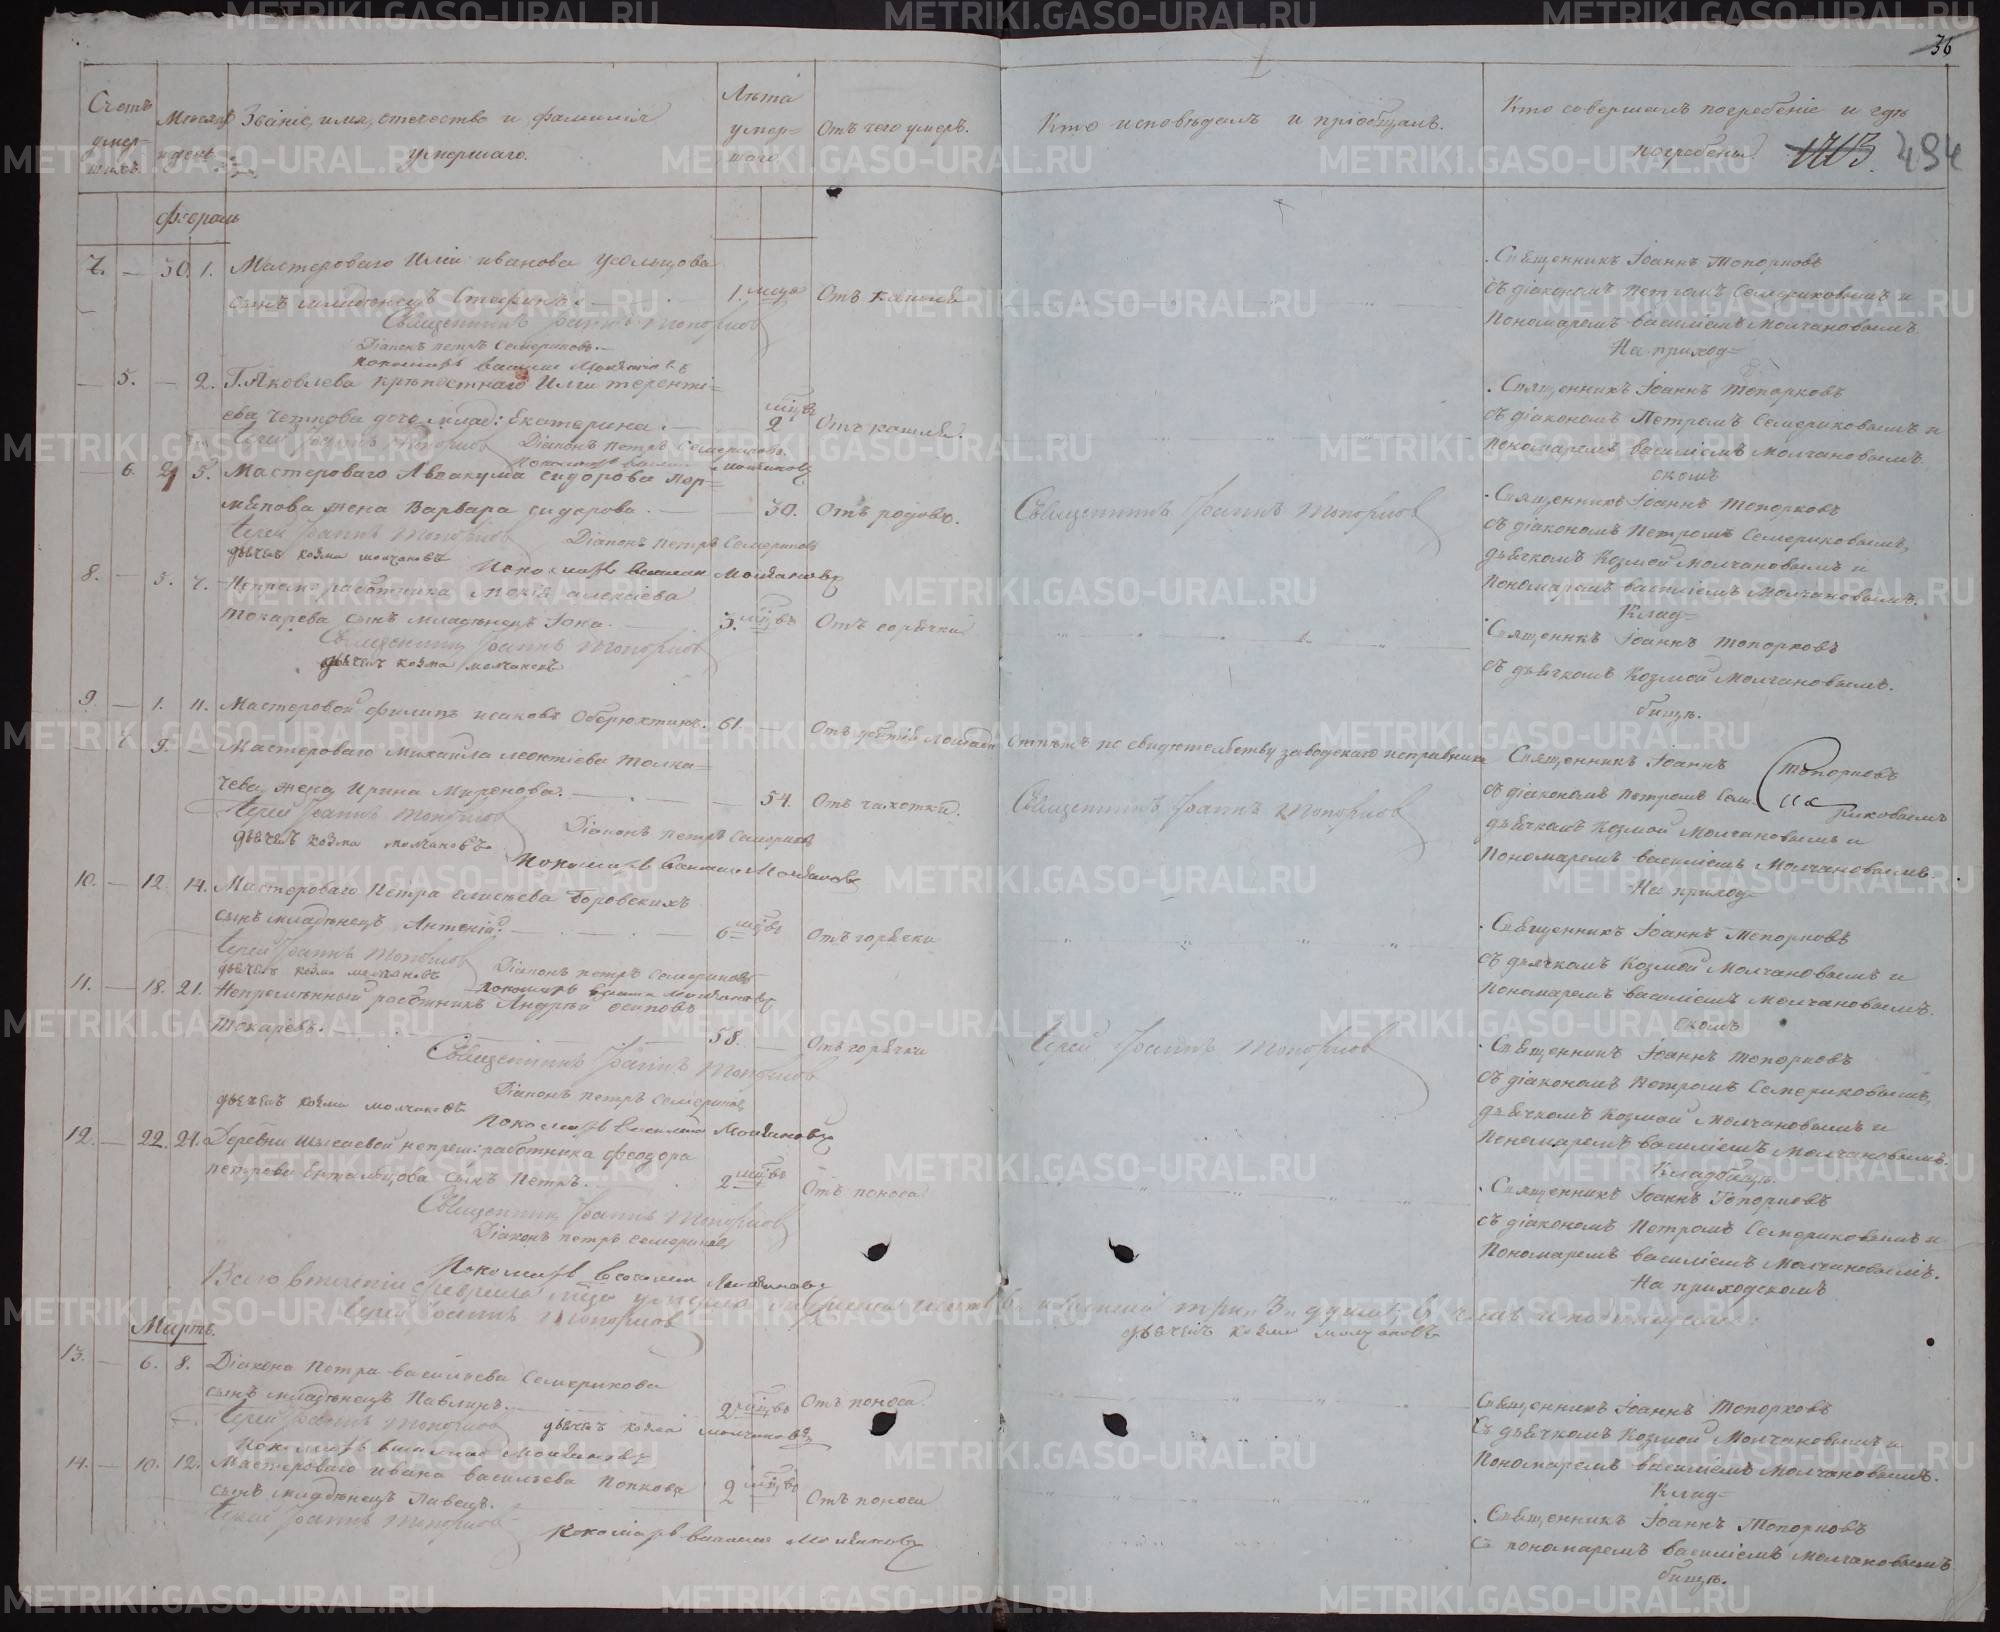 36
Счетъ умер-шихъ.
Месяцъ и день
Званіе, имя, отечество и фамилія умершаго.
Лѣта умер-шаго
Отъ чего умеръ.
Кто исповѣдалъ и пріобщалъ.
Кто совершалъ погребеніе и гдѣ погребены.
1713. 494
Февраль
7. — 30. 1. Мастероваго Иліи иванова усольцова
сынъ младенецъ Стефанъ. 1. мца Отъ кашля
Священникъ Іоаннъ Топорковъ
Діаконъ петръ Семериковъ.
пономарь василій Молчановъ
Священникъ Іоаннъ Топорковъ
съ діакономъ Петромъ Семериковымъ и
Пономаремъ василіемъ Молчановымъ.
На приход=
— 5. — 2. Г. Яковлева крѣпостнаго Иліи теренті=
ева четкова дочь млад: Екатерина. 2 мцвъ Отъ кашля.
Іерей Іоаннъ Топорковъ Діаконъ Петръ Семериковъ.
Пономарь василій Молчановъ
Священникъ Іоаннъ Топорковъ
съ діакономъ Петромъ Семериковымъ и
пономаремъ василіемъ Молчановымъ.
скомъ
— 6. 5. Мастероваго Аввакума сидорова пор=
мякова жена Варвара сидорова. — 30. Отъ родовъ.
Іерей Іоаннъ Топорковъ Діаконъ Петръ Семериковъ
дьячекъ козма молчановъ Пономарь Василій Молчановъ
Священникъ Іоаннъ Топорковъ
Священникъ Іоаннъ Топорковъ
съ діакономъ Петромъ Семериковымъ,
дьячкомъ Козмой Молчановымъ и
Пономаремъ василіемъ Молчановымъ.
Клад=
8. — 3. 7. Непрем: работника алексіева
токарева сынъ младенецъ Іона. 3. мцвъ Отъ горячки
Священникъ Іоаннъ Топорковъ
дьячекъ козма молчановъ
Священникъ Іоаннъ Топорковъ
съ дьячкомъ Козмой Молчановымъ.
бищѣ.
9. — 1. 11. Мастеровой филипъ исаковъ Оберюхтинъ. 61. — Отъ убитій Лошади Отпѣтъ по свидѣтельству заводскаго исправника
— 7. 9. — Мастероваго Михаила леонтіева Толка=
чева жена Ирина Миронова. — 54. Отъ чахотки.
Іерей Іоаннъ Топорковъ Діаконъ петръ Семериковъ
дьячекъ козма молчановъ
Пономарь василій Молчановъ
Священникъ Іоаннъ Топорковъ
Священникъ Іоаннъ Топорковъ
съ діакономъ Петромъ Семе- риковымъ
дьячкомъ Козмой Молчановымъ и
Пономаремъ василіемъ Молчановымъ.
На приход=
10. — 12. 14. Мастероваго Петра елисѣева Боровскихъ
сынъ младѣнецъ Антоній. 6 мцвъ Отъ горячки
Іерей Іоаннъ Топорковъ
дьячекъ козма молчановъ Діаконъ петръ Семериковъ
пономарь василій Молчановъ
Священникъ Іоаннъ Топорковъ
съ дьячкомъ Козмой Молчановымъ и
Пономаремъ василіемъ Молчановымъ.
скомъ
11. — 18. 21. Непремѣнный работникъ Андрей осиповъ
Токаревъ. 58. — Отъ горячки
Священникъ Іоаннъ Топорковъ
Діаконъ петръ Семериковъ
дьячекъ козма молчановъ
Пономарь Василій Молчановъ
Іерей Іоаннъ Топорковъ
Священникъ Іоаннъ Топорковъ
съ діакономъ Петромъ Семериковымъ,
дьячкомъ Козмой Молчановымъ и
Пономаремъ василіемъ Молчановымъ.
Кладбищѣ.
12. — 22. 24. Деревни непрем: работника феодора
петрова сынъ Петръ. 2 мцвъ Отъ поноса
Священникъ Іоаннъ Топорковъ
Діаконъ петръ семериковъ
Пономарь Василій Молчановъ
Священникъ Іоаннъ Топорковъ
съ діакономъ Петромъ Семериковымъ и
Пономаремъ василіемъ Молчановымъ.
На приходскомъ
Всего втеченіи февраля мца
Іерей Іоаннъ Топорковъ
дьячекъ козма молчановъ
Мартъ.
13. — 6. 8. Діакона Петра васильева Семерикова
сынъ младѣнецъ Павлинъ. 2 мцвъ Отъ поноса.
Іерей Іоаннъ Топорковъ дьячекъ козма молчановъ
Пономарь василій Молчановъ
Священникъ Іоаннъ Топорковъ
Съ дьячкомъ Козмой Молчановымъ и
Пономаремъ василіемъ Молчановымъ.
Клад=
14. — 10. 12. Мастероваго ивана васильева Попкова
сынъ младѣнецъ Павелъ. 2 мцвъ Отъ поноса
Іерей Іоаннъ Топорковъ
Пономарь василій Молчановъ
Священникъ Іоаннъ Топорковъ
Съ пономаремъ василіемъ Молчановымъ
бищѣ.
METRIKI.GASO-URAL.RU